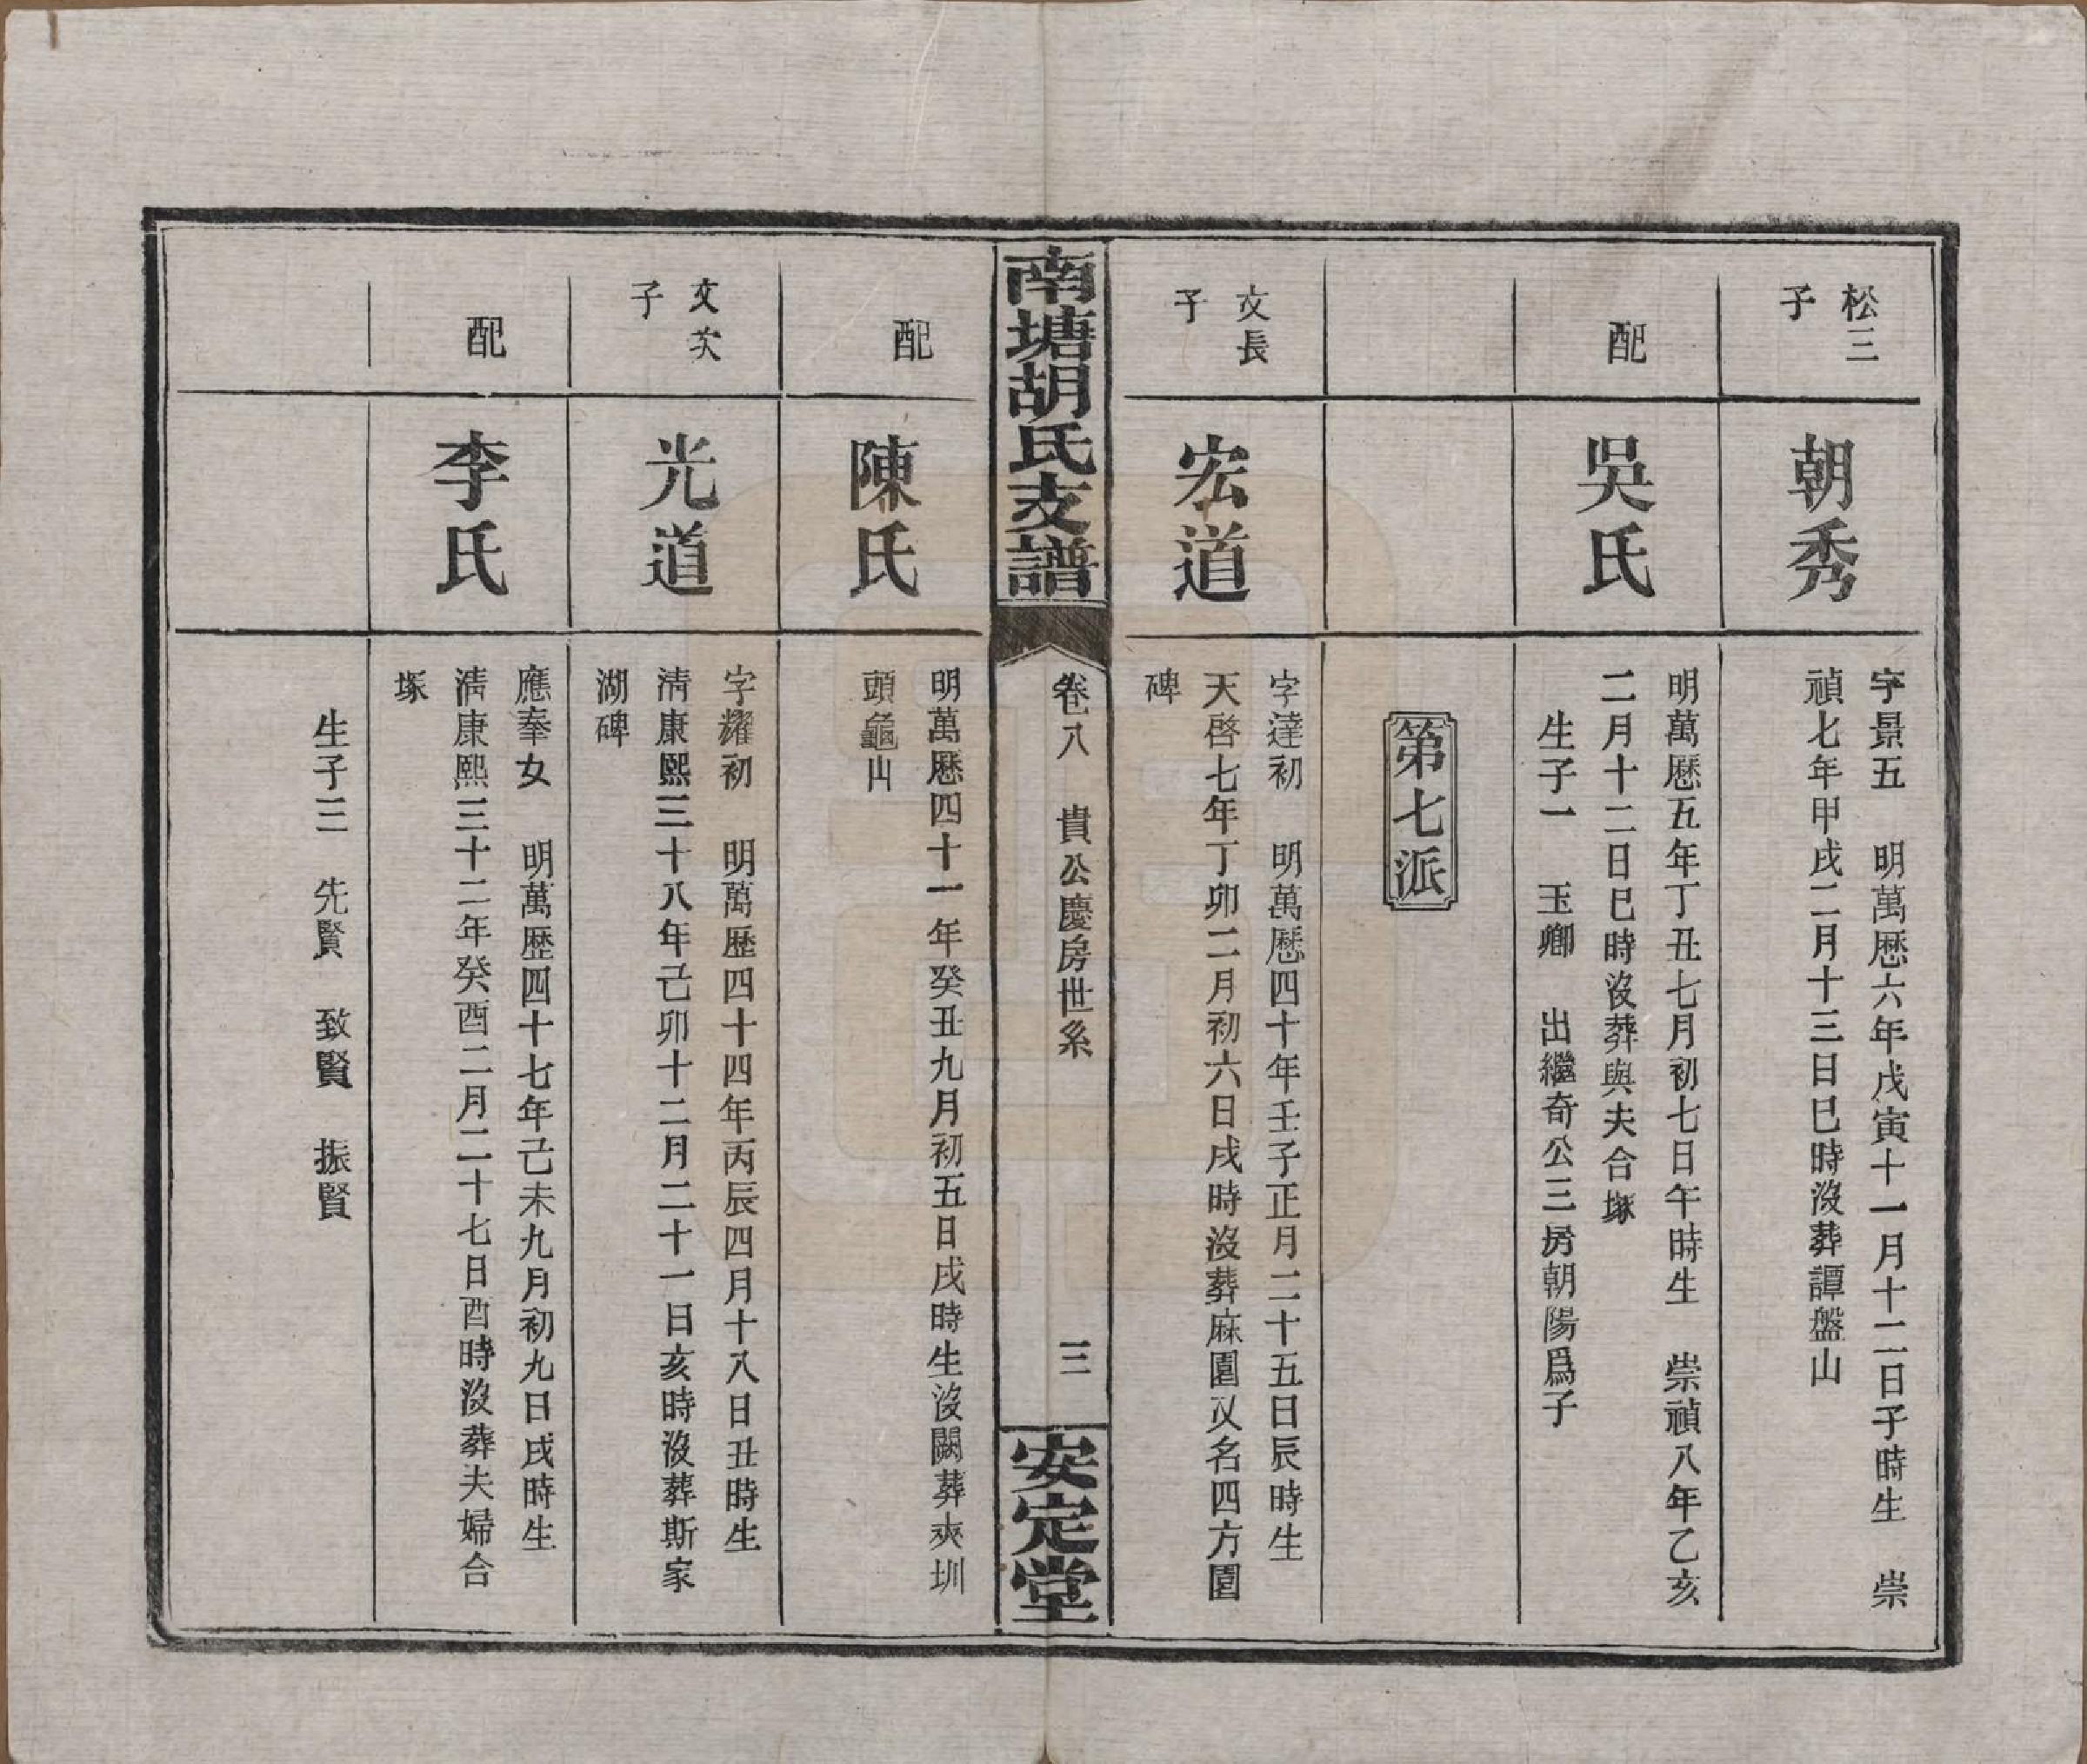 松三
子
朝秀
字景五　明萬厯六年戊寅十一月十二日子時生　崇
禎七年甲戌二月十三日巳時沒葬譚盤山
配
吳氏
明萬厯五年丁丑七月初七日午時生　崇禎八年乙亥
二月十二日巳時沒葬與夫合塚
生子一　玉卿　出繼奇公三房朝陽爲子
第七派
文長
子
宏道
字達初　明萬厯四十年壬子正月二十五日辰時生
天啓七年丁卯二月初六日戌時沒葬麻園又名四方園
碑
南塘胡氏支譜
卷八　貴公慶房世系
三
安定堂
配
陳氏
明萬厯四十一年癸丑九月初五日戌時生沒闕葬夾圳
頭龜山
文次
子
光道
字耀初　明萬歴四十四年丙辰四月十八日丑時生
淸康熙三十八年己卯十二月二十一日亥時沒葬斯家
湖碑
配
李氏
應奉女　明萬歴四十七年己未九月初九日戌時生
淸康熙三十二年癸酉二月二十七日酉時沒葬夫婦合
塚
生子三　先賢　致賢　振賢